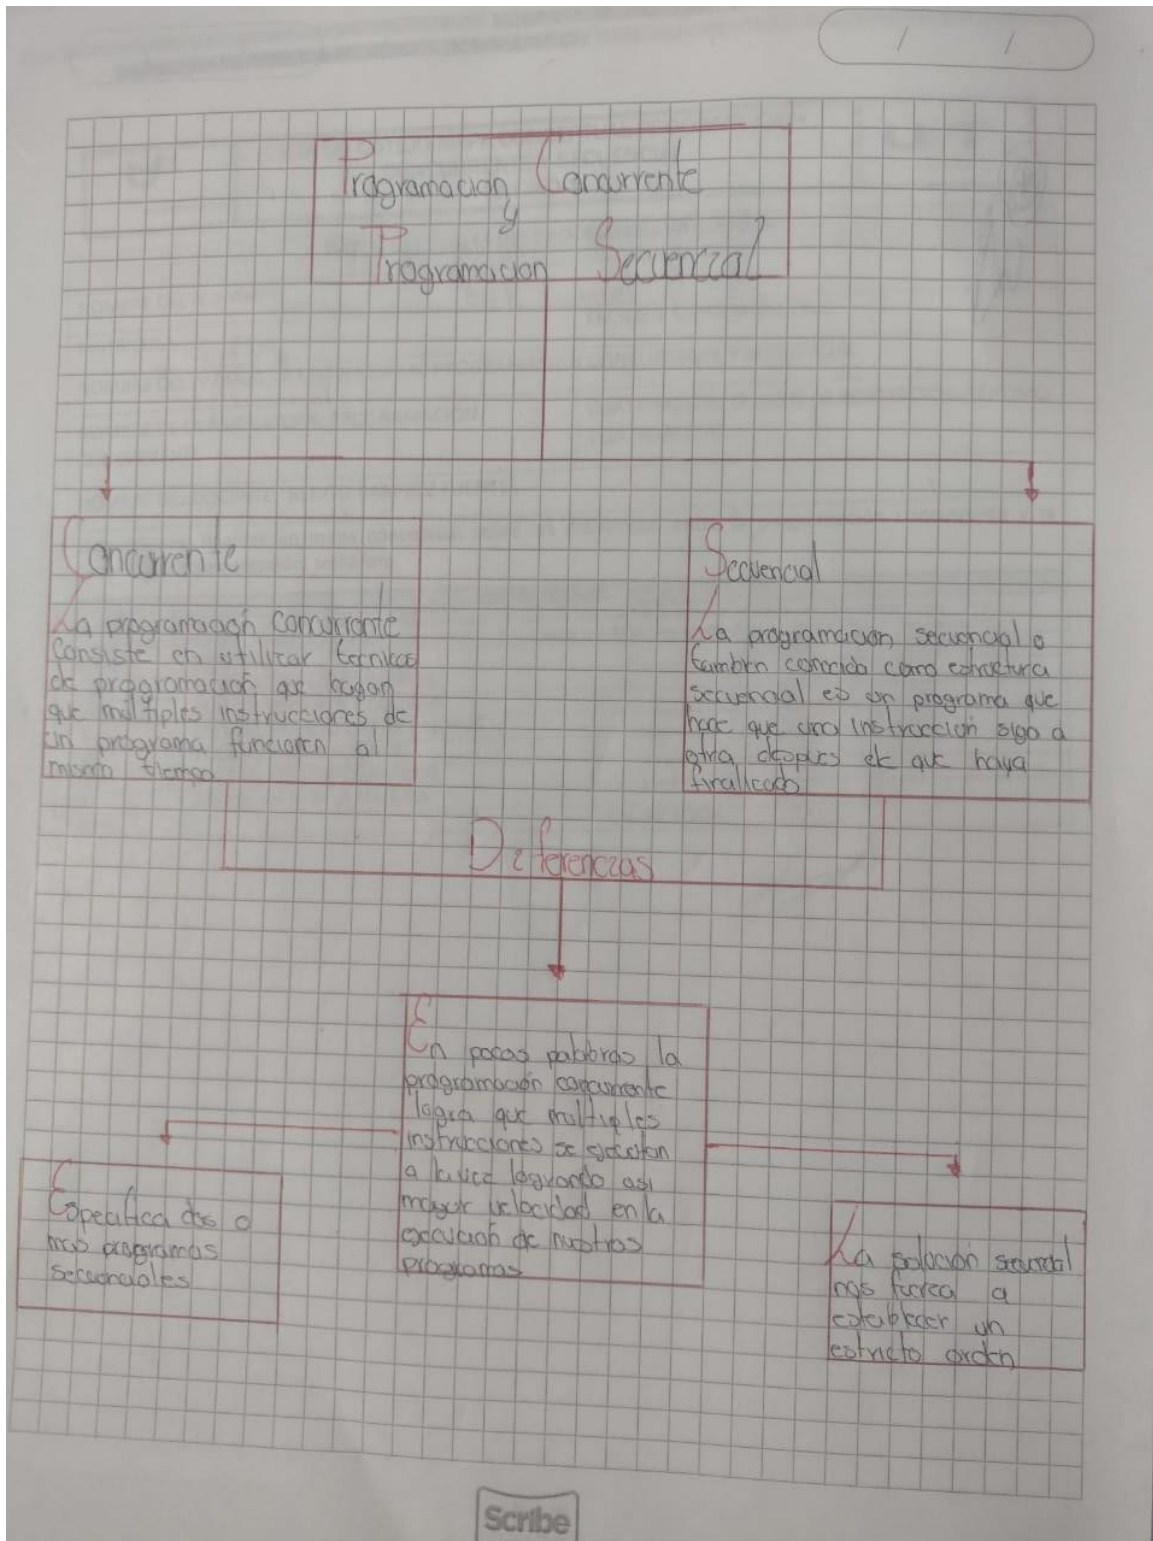 Programacion Concurrente
y
Programacion Secuencial
Concurrente
La programación concurrente
consiste en utilizar tecnicas
de programacion que hagan
que multiples instrucciones de
un programa funcionen al
mismo tiempo
Secuencial
La programación secuencial o
tambien conocida como estructura
secuencial es un programa que
hace que una instrucción siga a
otra despues de que haya
finalizado
Diferencias
En pocas palabras la
programación concurrente
logra que multiples
instrucciones se ejecuten
a la vez logrando asi
mayor velocidad en la
ejecucion de nuestros
programas
Especifica dos o
mas programas
secuenciales
La solución secuencial
nos fuerza a
establecer un
estricto orden
Scribe